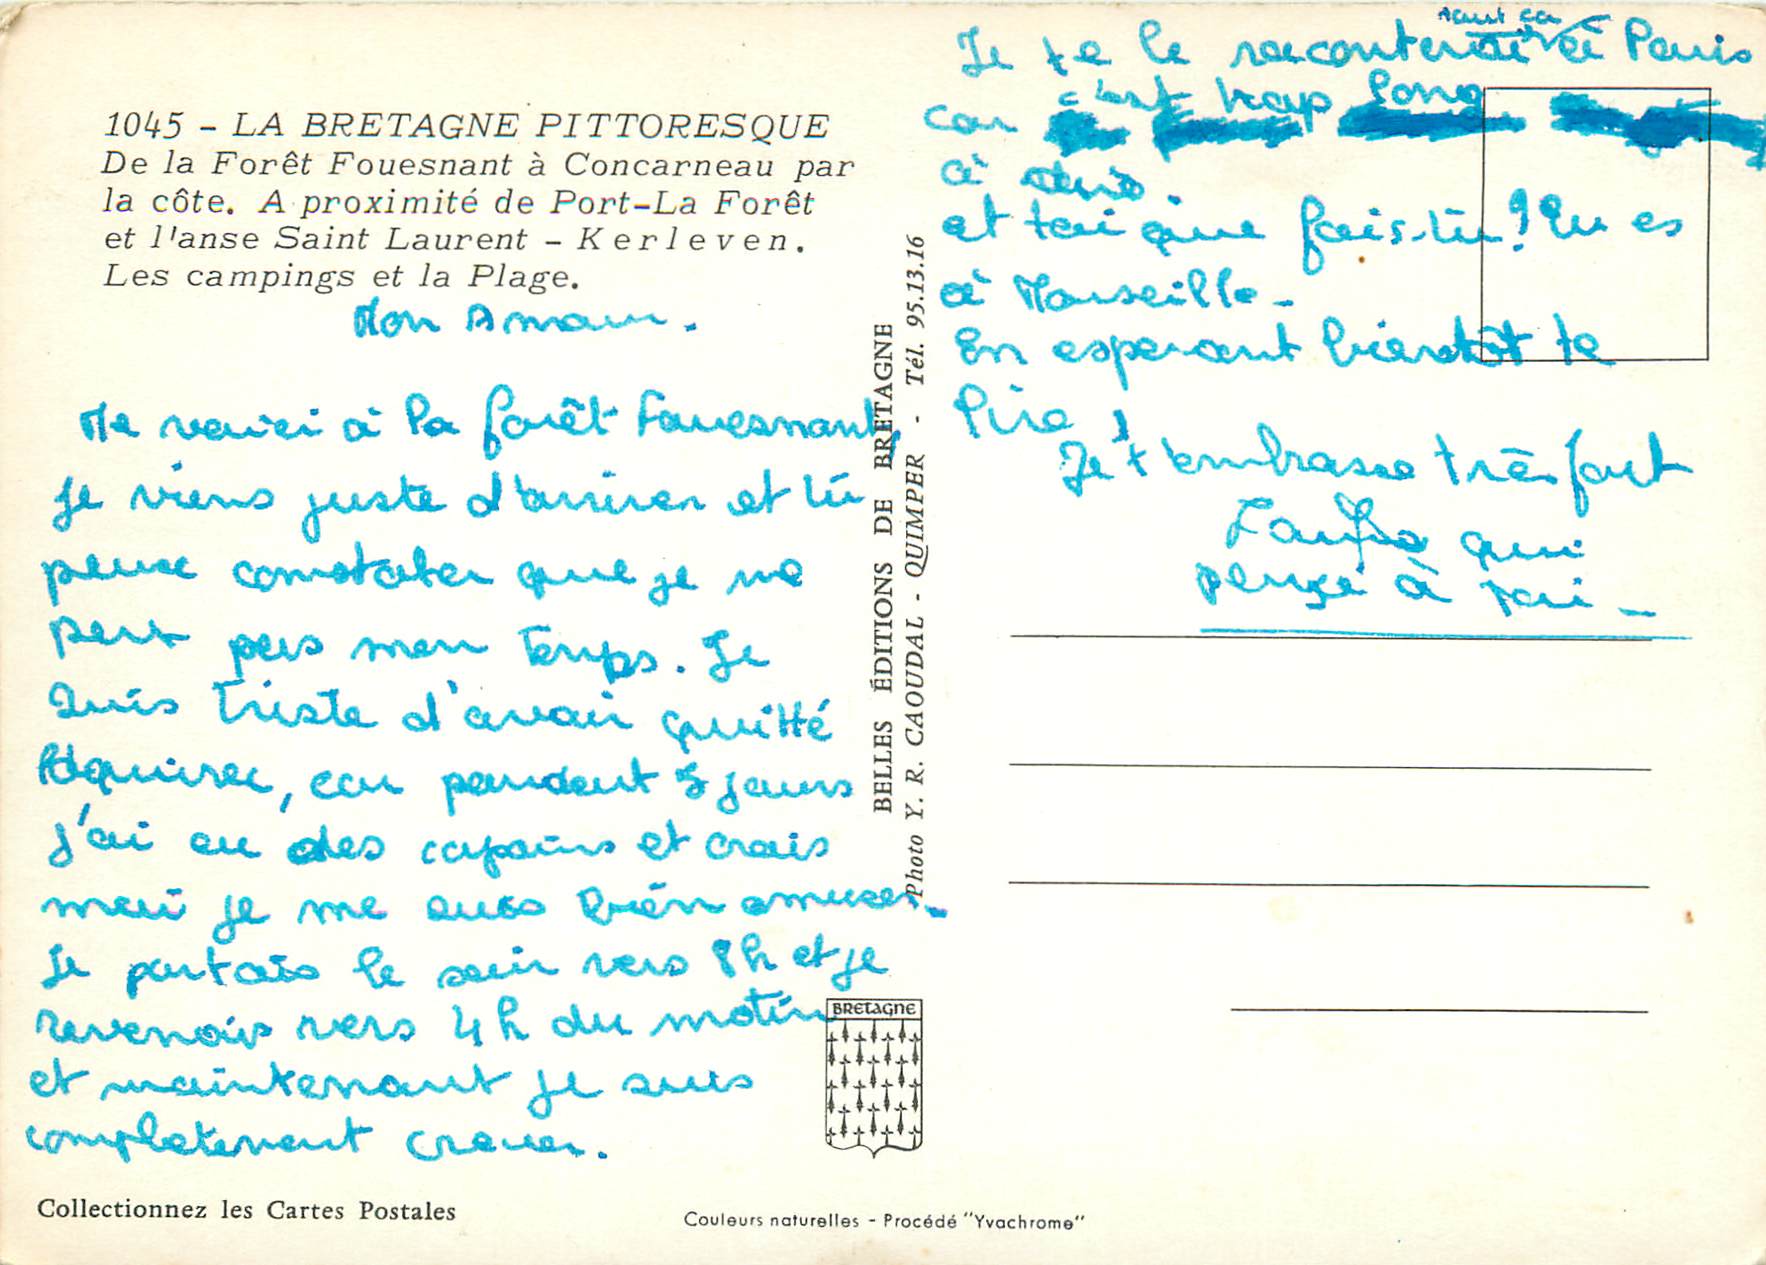 1045 - LA BRETAGNE PITTORESQUE
De la Forêt Fouesnant à Concarneau par
la côte. A proximité de Port-La Forêt
et l'anse Saint Laurent - Kerleven.
Les campings et la Plage.
Mon Amour.
Me voici à la forêt Fouesnant,
je viens juste d'arriver et tu
peux constater que je ne
pert pas mon temps. Je
suis triste d'avoir quitté
Loquirec, car pendant 5 jours
j'ai eu des copains et crois
moi je me suis bien amuser.
Je partais le soir vers 8h et je
revenais vers 4h du matin
et maintenant je suis
completement crever.
Collectionnez les Cartes Postales
BELLES ÉDITIONS DE BRETAGNE
Photo Y. R. CAOUDAL - QUIMPER - Tél. 95.13.16
BRETAGNE
Couleurs naturelles - Procédé "Yvachrome"
tout ça
Je te le raconterai à Paris
car c'est trop long
à
et toi que fais-tu? Tu es
à Marseille -
En esperant bientôt te
lire
Je t'embrasse très fort
qui
pense à toi -